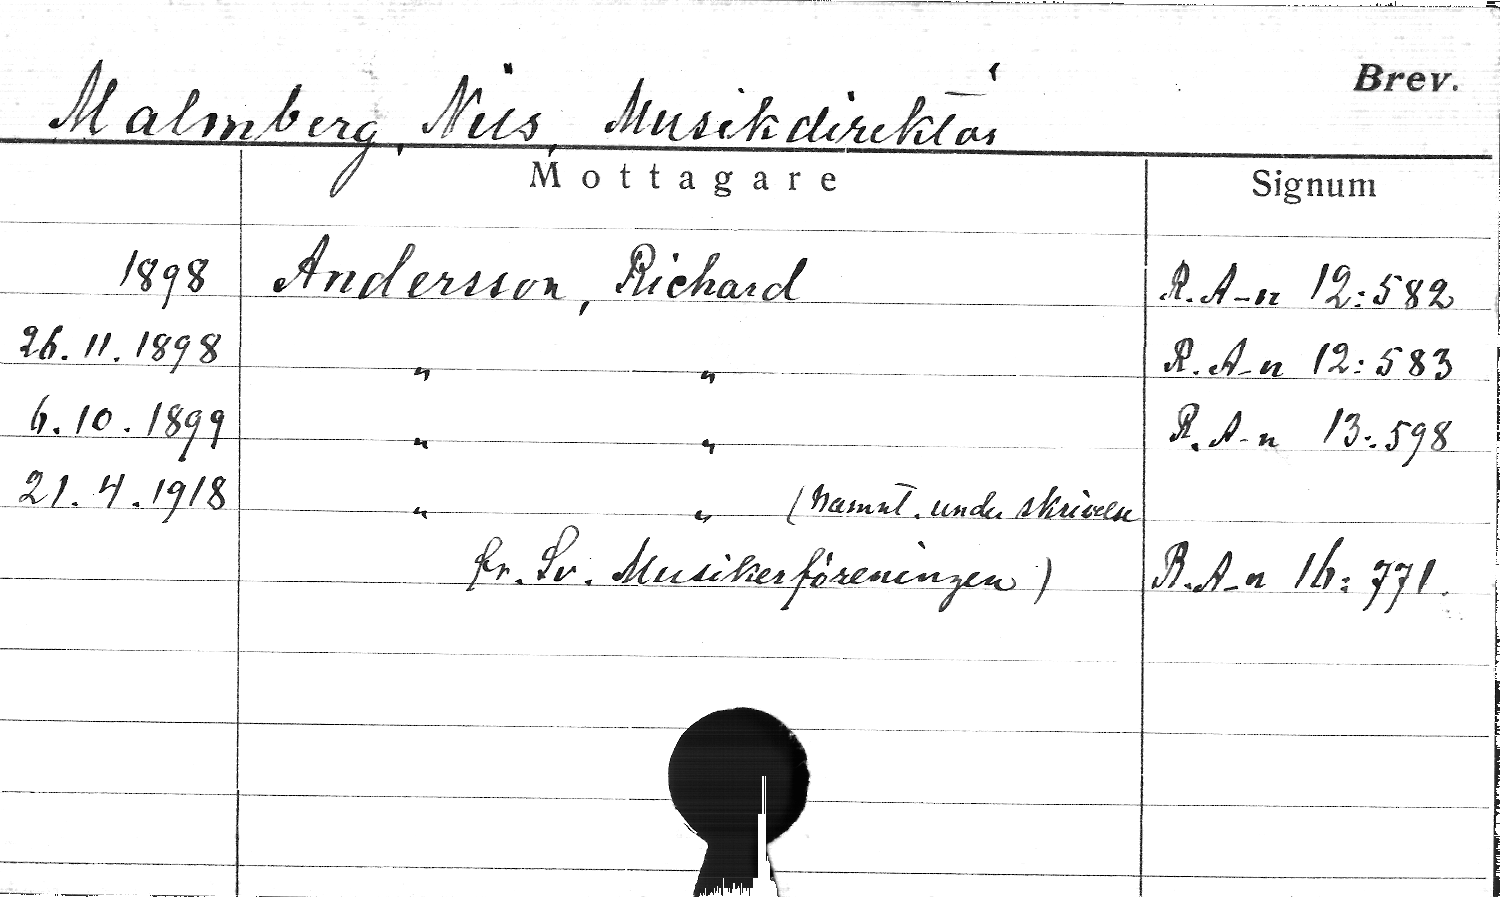 Brev.
Malmberg, Nils, Musikdirektör
Mottagare Signum
1898 Andersson, Richard R. A-n 12:582
26. 11. 1898 " " R. A-n 12:583
6. 10. 1899 " " R. A-n 13:598
21. 4. 1918 " " (Namnt. under skrivelse
fr. Sv. Musikerföreningen) R. A-n 16:771.